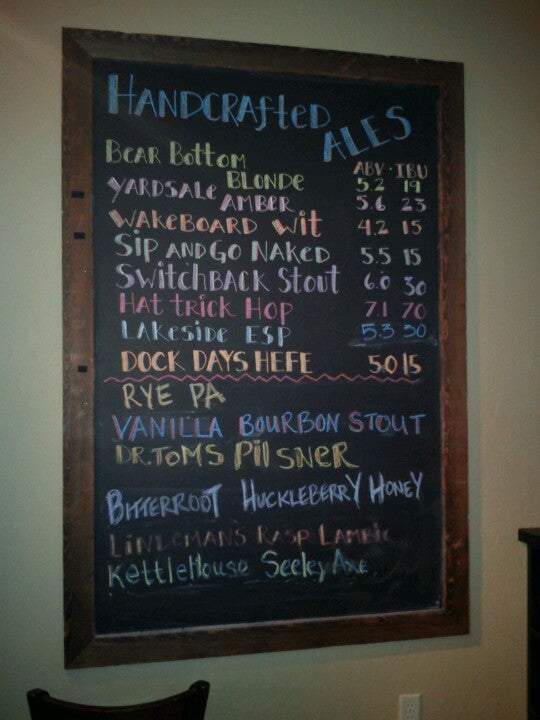 HANDCRAfTED ALES
ABV · IBU
BEAR BOTTOM BLONDE 5.2 19
YARDSALE AMBER 5.6 23
WAKEBOARD WIT 4.2 15
SIP AND GO NAKED 5.5 15
SWITCHBACK STOUT 6.0 30
HAT TRICK HOP 7.1 70
LAKESIDE ESP 5.3 30
DOCK DAYS HEFE 5.0 15
RYE PA
VANILLA BOURBON STOUT
DR.TOMS PILSNER
BITTERROOT HUCKLEBERRY HONEY
LINDEMAN'S RASP LAMBIC
KETTLEHOUSE SEELEY AXE